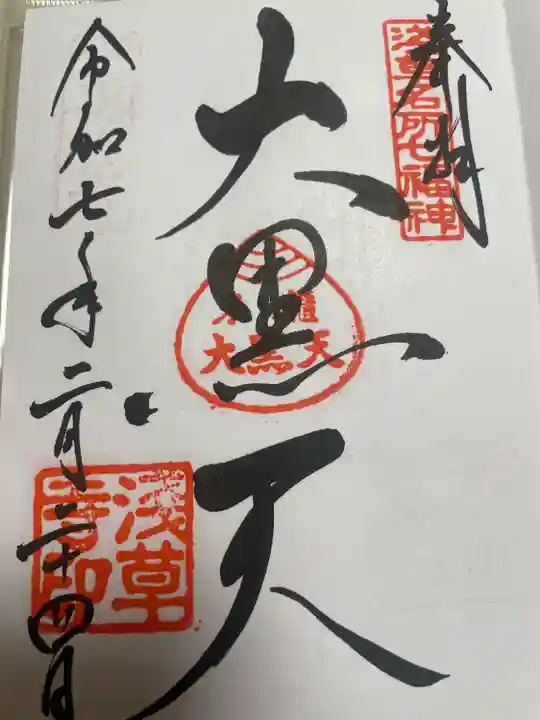 奉拝
浅草名所七福神
大黒天
米櫃
大黒天
令和七年二月二十四日
浅草
寺印